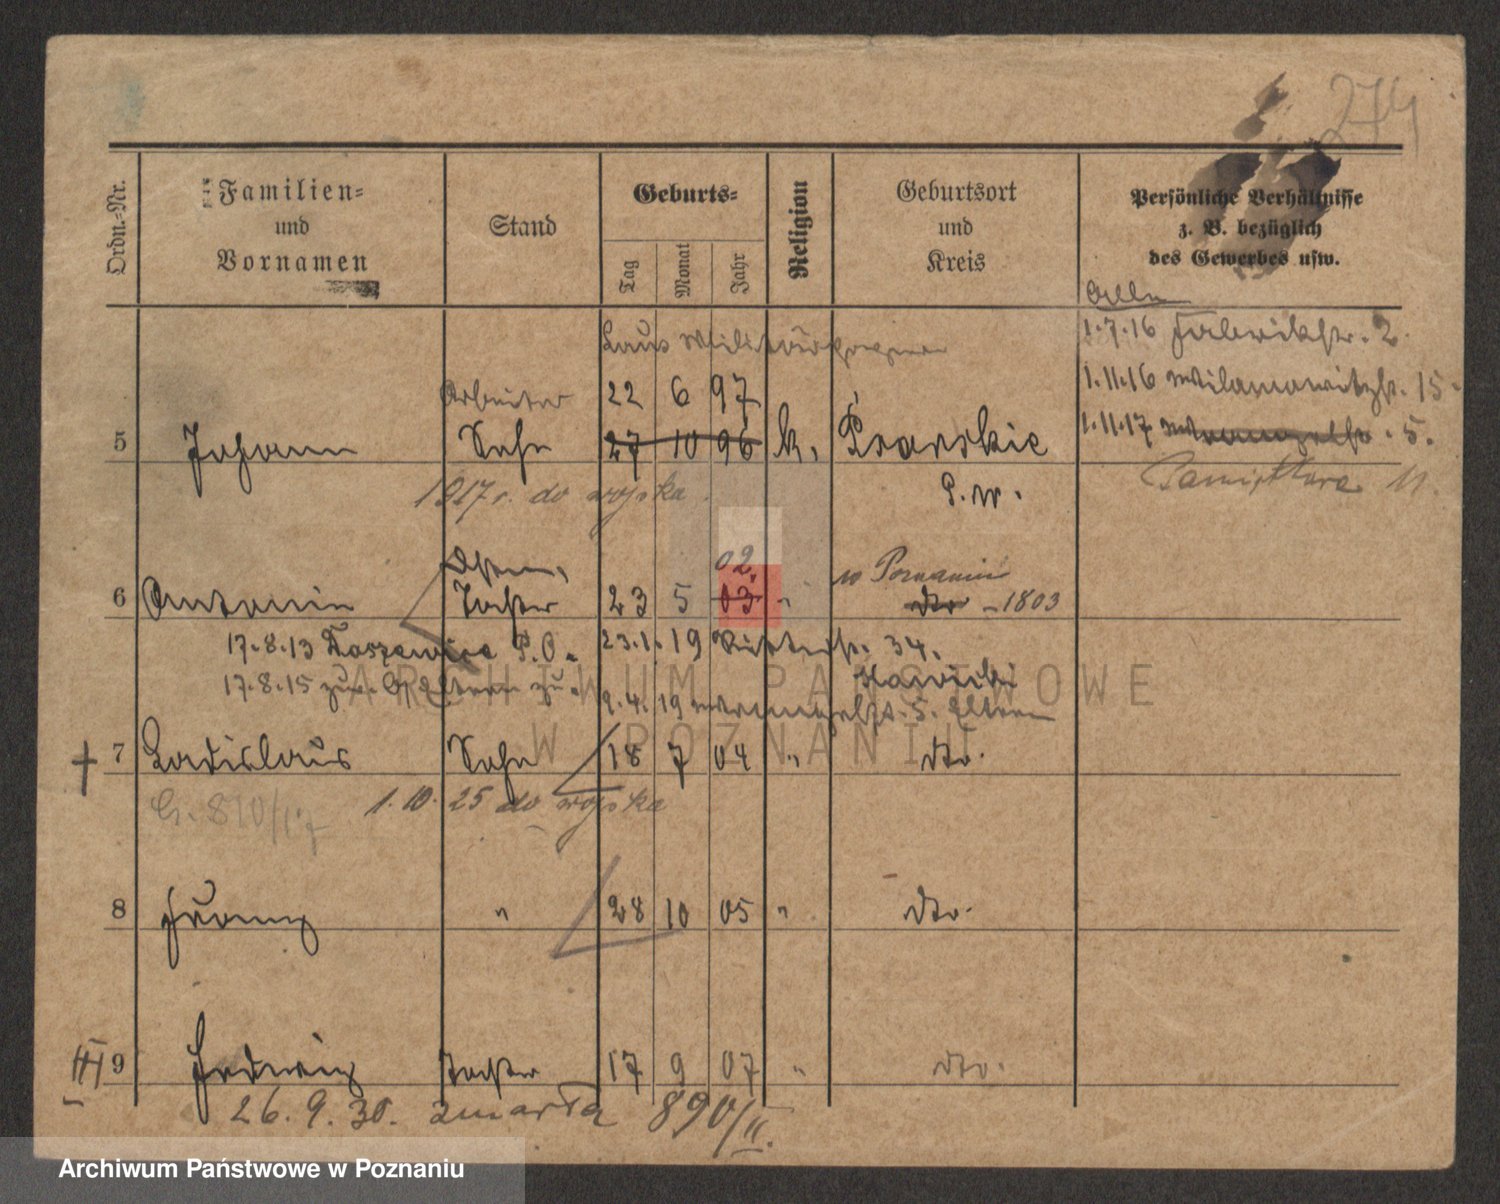 274
Ordn.-Nr.
Familien-
und
Vornamen
Stand
Geburts-
Tag
Monat
Jahr
Religion
Geburtsort
und
Kreis
Persönliche Verhältnisse
z. B. bezüglich
des Gewerbes usw.
1.7.16 Fabrikstr. 2.
Laus Militär
Arbeiter 22 6 97 1.11.16 15
5 Johann Sohn 27 10 96 k. Psarskie 1.11.17 5.
1917 r. do wojska P. W. 11.
02.
w Poznaniu
6 Antonin Tochter 23 5 03 " dto 1803
17.8.13 P.O. 23.1.19 34.
17.8.15 zur. Eltern zu
9.4.19 5. Eltern
7 Ladislaus Sohn 18 7 04 " dto.
1.10.25 do wojska
8 Franz " 28 10 05 " dto.
III 9 Hedwig Tochter 17 9 07 " dto.
26.9.30. zmarła 890/II.
ARCHIWUM PAŃSTWOWE
W POZNANIU
Archiwum Państwowe w Poznaniu